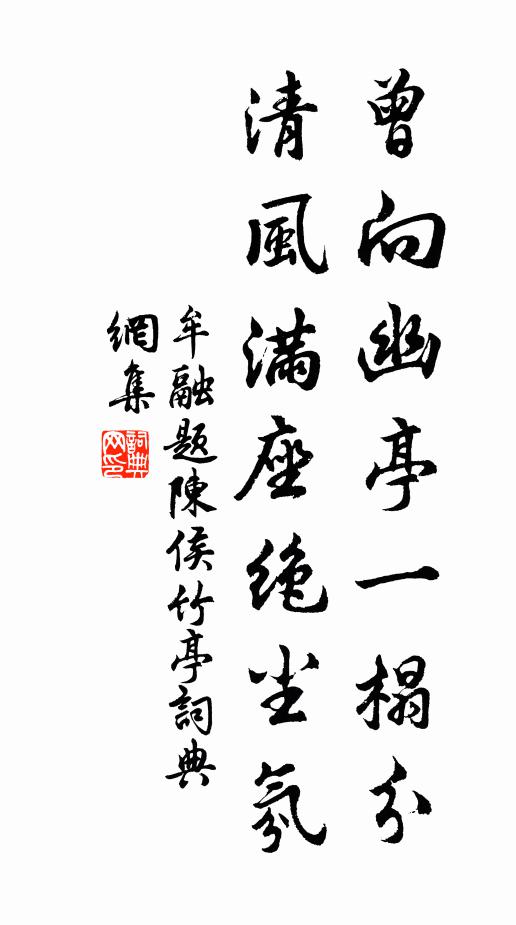 曾向幽亭一榻分
清風滿座絶尘氛
牟融題陳侯竹亭詞典
網集
詞典网印